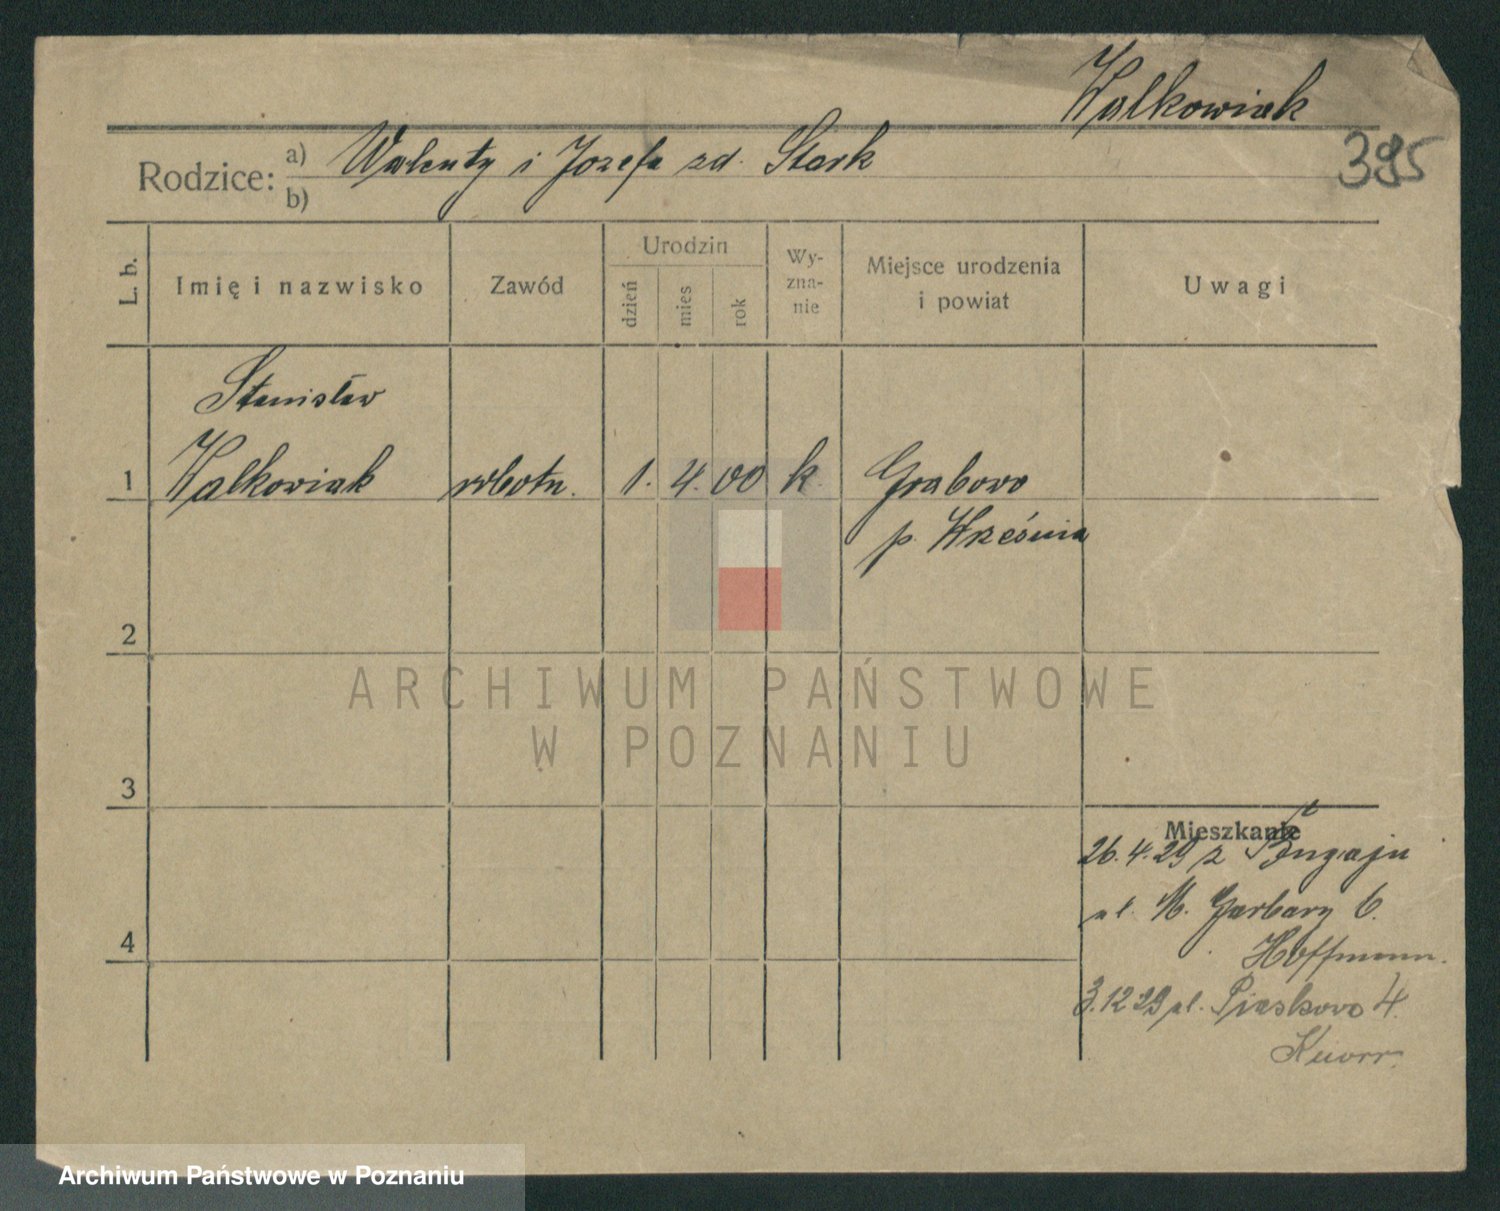 Walkowiak
395
Rodzice: a) Walenty i Jozefa zd. Stark
b)
L. b. Imię i nazwisko Zawód Urodzin dzień mies rok Wy-zna-nie Miejsce urodzenia i powiat Uwagi
Stanisław
1 Walkowiak robotn. 1. 4. 00 k. Grabowo
p. Września
2
ARCHIWUM PAŃSTWOWE
W POZNANIU
3
Mieszkanie
26.4.29 z Bugaju
ul. M. Garbary 6.
4
Hoffmann.
3.12.29 ul. Piaskowa 4.
Knorr.
Archiwum Państwowe w Poznaniu